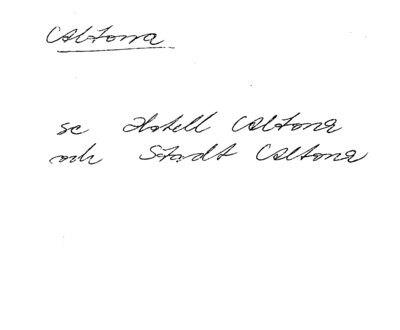 Altona
se Hotell Altona
och Stadt Altona